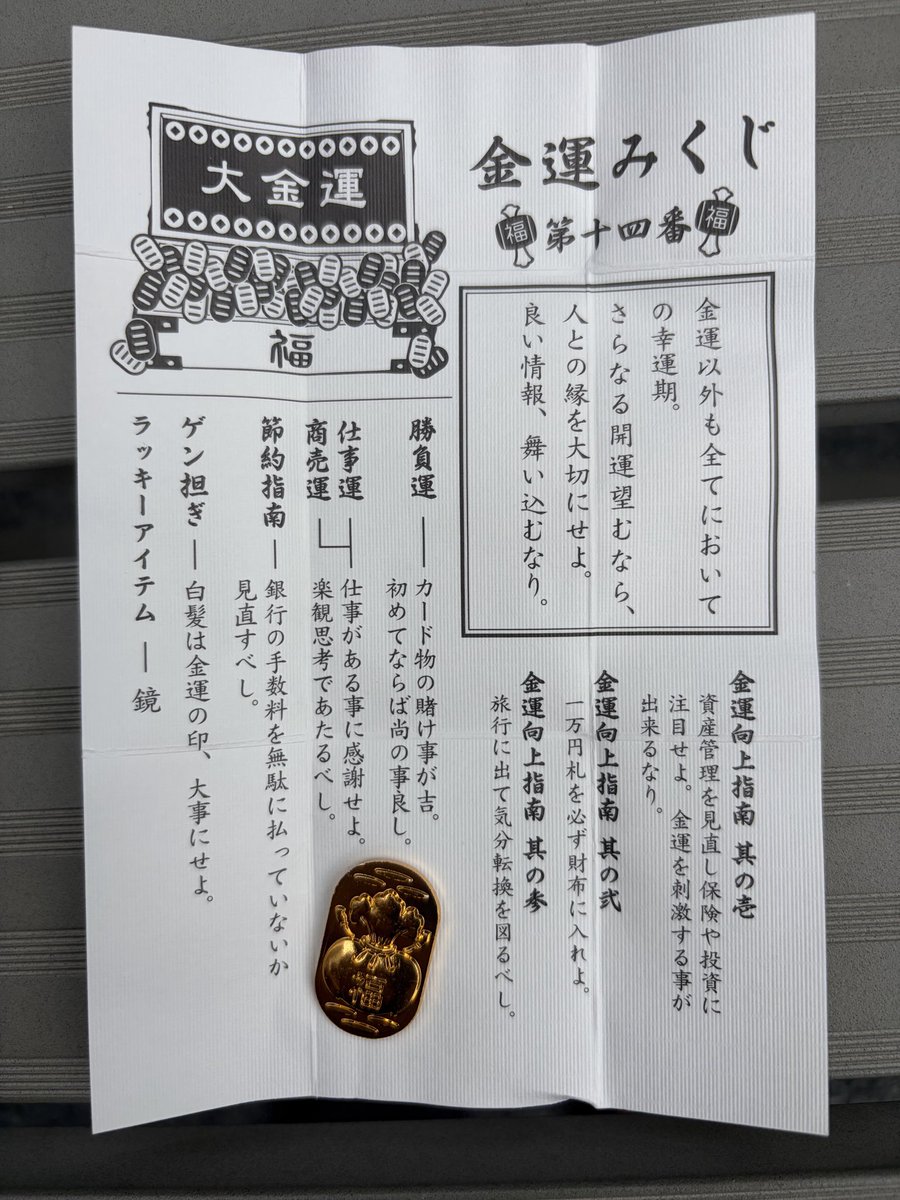 金運みくじ
福
第十四番
福
金運以外も全てにおいて
の幸運期。
さらなる開運望むなら、
人との縁を大切にせよ。
良い情報、舞い込むなり。
金運向上指南 其の壱
資産管理を見直し保険や投資に
注目せよ。金運を刺激する事が
出来るなり。
金運向上指南 其の弐
一万円札を必ず財布に入れよ。
金運向上指南 其の参
旅行に出て気分転換を図るべし。
大金運
福
勝負運
カード物の賭け事が吉。
初めてならば尚の事良し。
仕事運
商売運
仕事がある事に感謝せよ。
楽観思考であたるべし。
節約指南
銀行の手数料を無駄に払っていないか
見直すべし。
ゲン担ぎ
白髪は金運の印、大事にせよ。
ラッキーアイテム
鏡
福